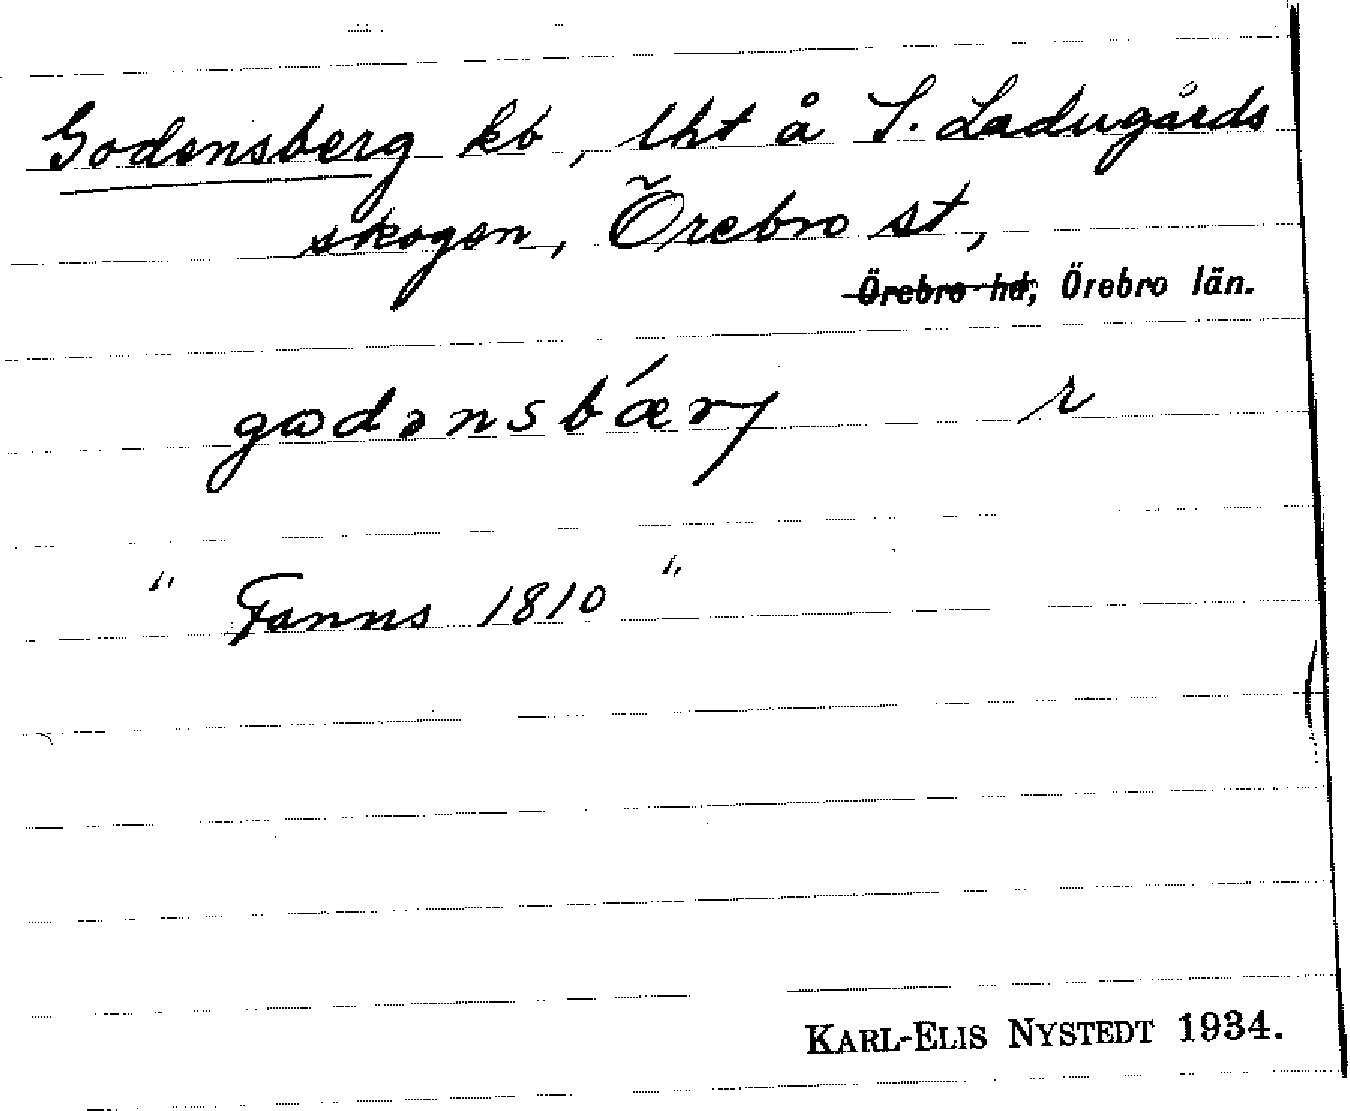 Godensberg kb, lht å S. Ladugårds
skogen, Örebro st,
Örebro hd, Örebro län.
gωdənsbǽrγ r
" Fanns 1810 "
KARL-ELIS NYSTEDT 1934.